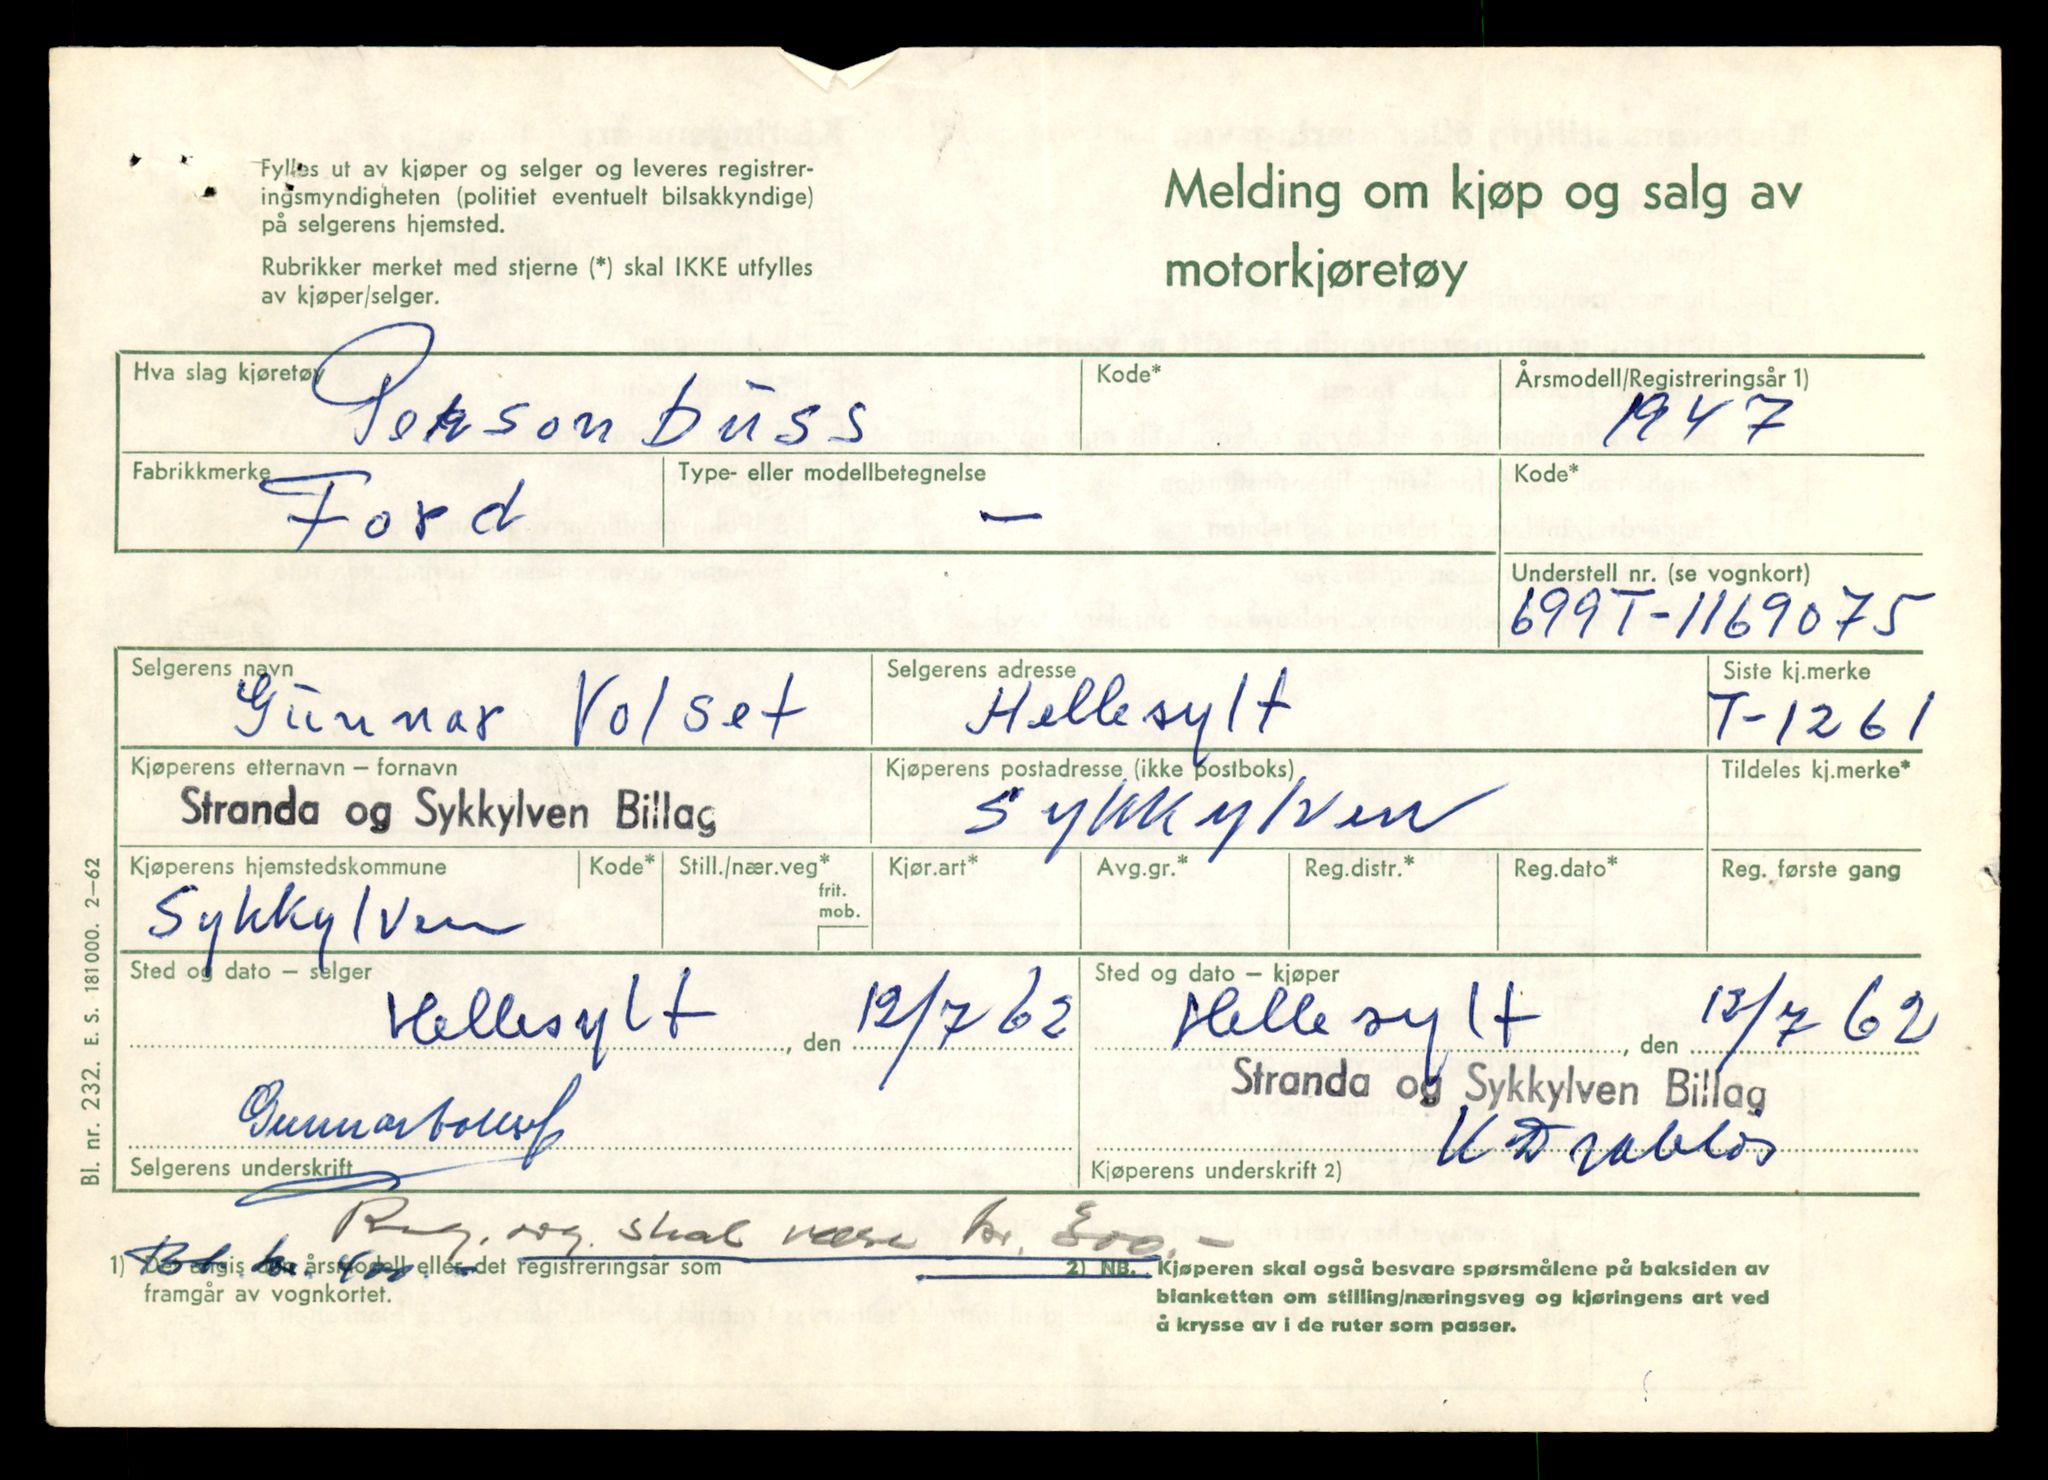 Fylles ut av kjøper og selger og leveres registrer-
ingsmyndigheten (politiet eventuelt bilsakkyndige)
på selgerens hjemsted.
Rubrikker merket med stjerne (*) skal IKKE utfylles
av kjøper/selger.
Melding om kjøp og salg av
motorkjøretøy
Hva slag kjøretøy
Personbuss
Kode*
Årsmodell/Registreringsår 1)
1947
Fabrikkmerke
Ford
Type- eller modellbetegnelse
—
Kode*
Understell nr. (se vognkort)
699T-1169075
Selgerens navn
Gunnar Volset
Selgerens adresse
Hellesylt
Siste kj.merke
T-1261
Kjøperens etternavn — fornavn
Stranda og Sykkylven Billag
Kjøperens postadresse (ikke postboks)
Sykkylven
Tildeles kj.merke*
Kjøperens hjemstedskommune
Sykkylven
Kode*
Still./nær.veg*
frit.
mob.
Kjør.art*
Avg.gr.*
Reg.distr.*
Reg.dato*
Reg. første gang
Sted og dato — selger
Hellesylt, den 12/7 62
Sted og dato — kjøper
Hellesylt, den 12/7 62
Stranda og Sykkylven Billag
Gunnar Volset
K Drabløs
Selgerens underskrift
Kjøperens underskrift 2)
Reg. avg. skal være kr. 800.-
Bet. kr.
1) Det angis den årsmodell eller det registreringsår som
framgår av vognkortet.
2) NB. Kjøperen skal også besvare spørsmålene på baksiden av
blanketten om stilling/næringsveg og kjøringens art ved
å krysse av i de ruter som passer.
Bl. nr. 2232. E. S. 181 000. 2—62